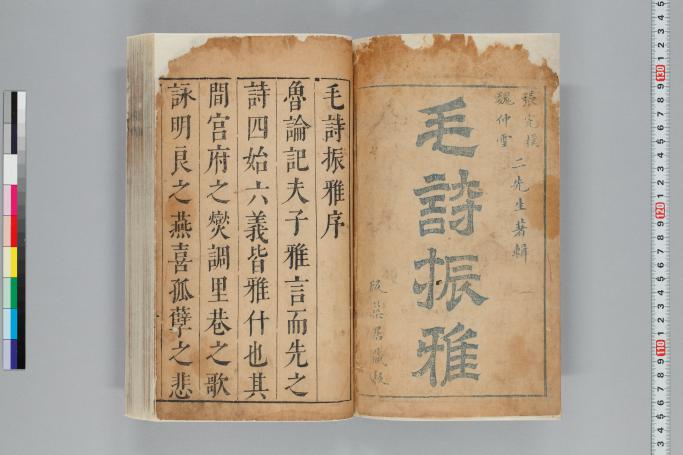 張元㮣
魏仲雪
二先生著輯
毛詩振雅
居藏板
毛詩振雅序
魯論記夫子雅言而先之
詩四始六義皆雅什也其
間宮府之爕調里巷之歌
詠明良之燕喜孤孽之悲
130
120
110